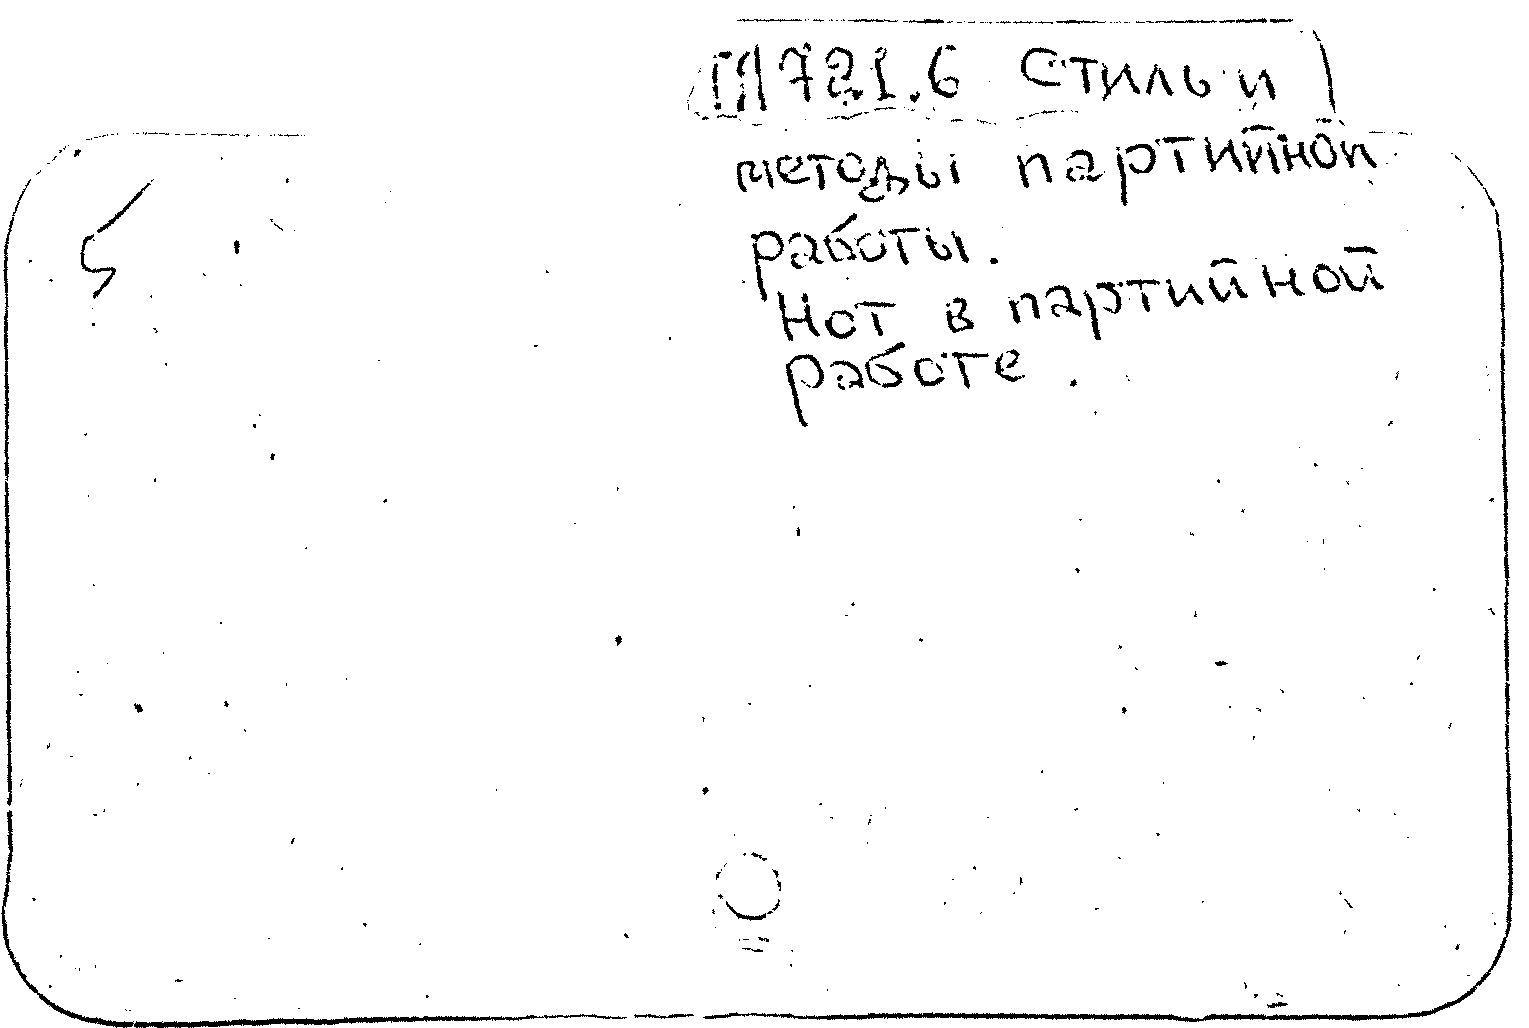 П721.6 Стиль и
методы партийной
работы.
Нот в партийной
работе.